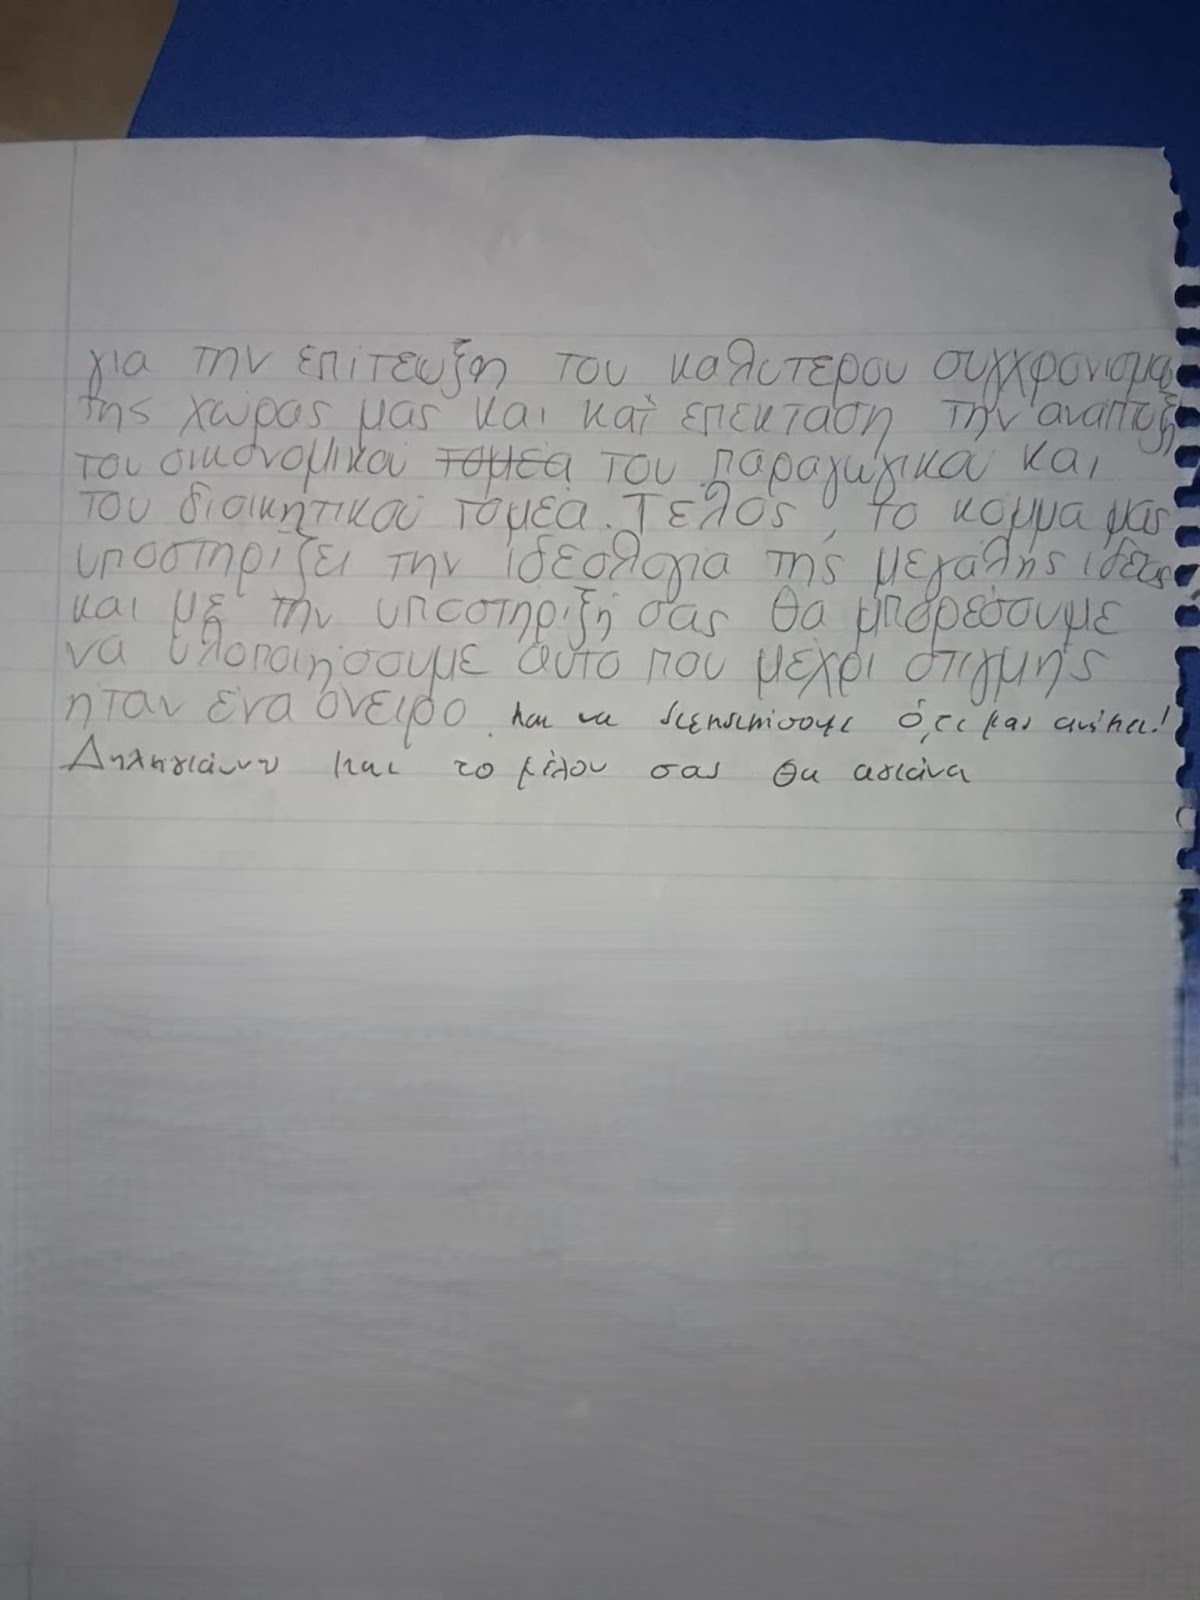 για την επίτευξη του καλύτερου συγχρονισμο
της χώρας μας και κατ επέκταση την αναπτυξη
του οικονομικού τομέα του παραγωγικού και
του διοικητικού τομέα. Τέλος, το κόμμα μας
υποστηρίζει την ιδεολογία της μεγάλης ιδέας
και με την υποστήριξή σας θα μπορέσουμε
να υλοποιήσουμε αυτό που μέχρι στιγμής
ήταν ένα όνειρο. και να ό,τι μας ανήκει!
Δηληγιάννη και το μέλου σας θα